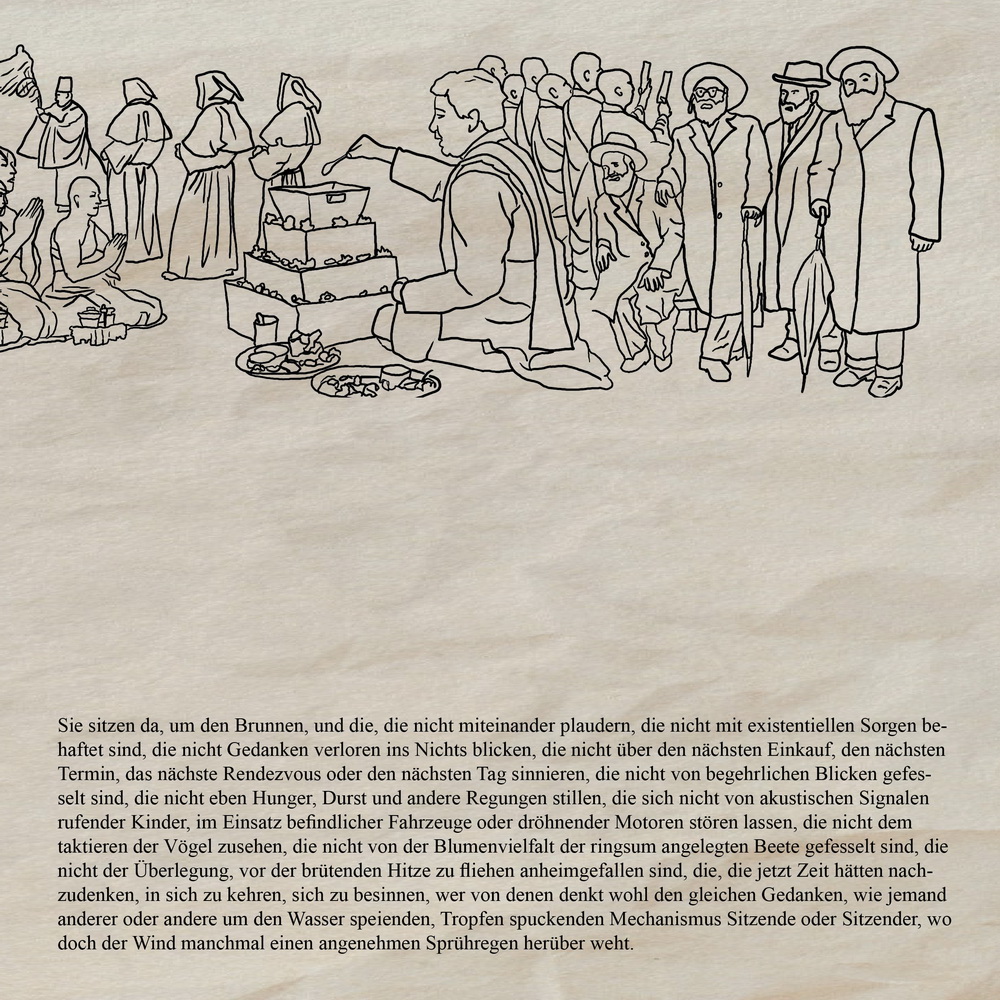 Sie sitzen da, um den Brunnen, und die, die nicht miteinander plaudern, die nicht mit existentiellen Sorgen be-
haftet sind, die nicht Gedanken verloren ins Nichts blicken, die nicht über den nächsten Einkauf, den nächsten
Termin, das nächste Rendezvous oder den nächsten Tag sinnieren, die nicht von begehrlichen Blicken gefes-
selt sind, die nicht eben Hunger, Durst und andere Regungen stillen, die sich nicht von akustischen Signalen
rufender Kinder, im Einsatz befindlicher Fahrzeuge oder dröhnender Motoren stören lassen, die nicht dem
taktieren der Vögel zusehen, die nicht von der Blumenvielfalt der ringsum angelegten Beete gefesselt sind, die
nicht der Überlegung, vor der brütenden Hitze zu fliehen anheimgefallen sind, die, die jetzt Zeit hätten nach-
zudenken, in sich zu kehren, sich zu besinnen, wer von denen denkt wohl den gleichen Gedanken, wie jemand
anderer oder andere um den Wasser speienden, Tropfen spuckenden Mechanismus Sitzende oder Sitzender, wo
doch der Wind manchmal einen angenehmen Sprühregen herüber weht.